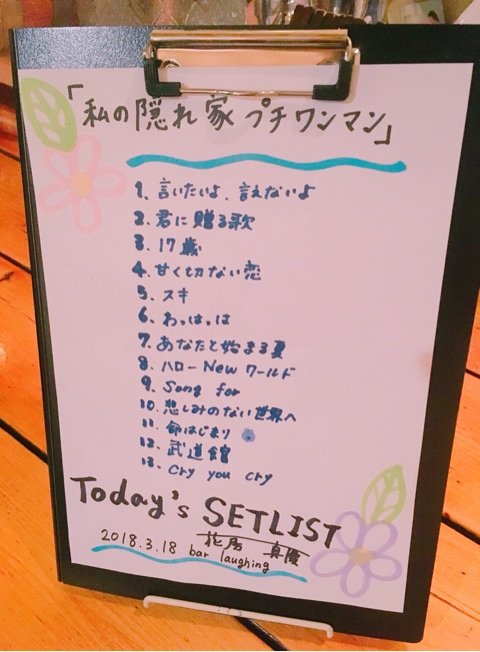 「私の隠れ家プチワンマン」
1. 言いたいよ、言えないよ
2. 君に贈る歌
3. 17歳
4. 甘く切ない恋
5. スキ
6. わっはっは
7. あなたと始まる夏
8. ハローNewワールド
9. Song for
10. 悲しみのない世界へ
11. 命はじまり
12. 武道館
13. Cry you cry
Today's SETLIST
2018.3.18 花房 真優
bar laughing